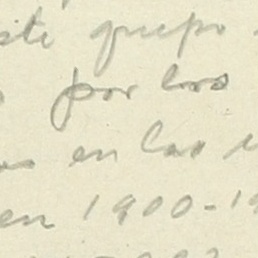 este grupo
por los
en las
en 1900-19